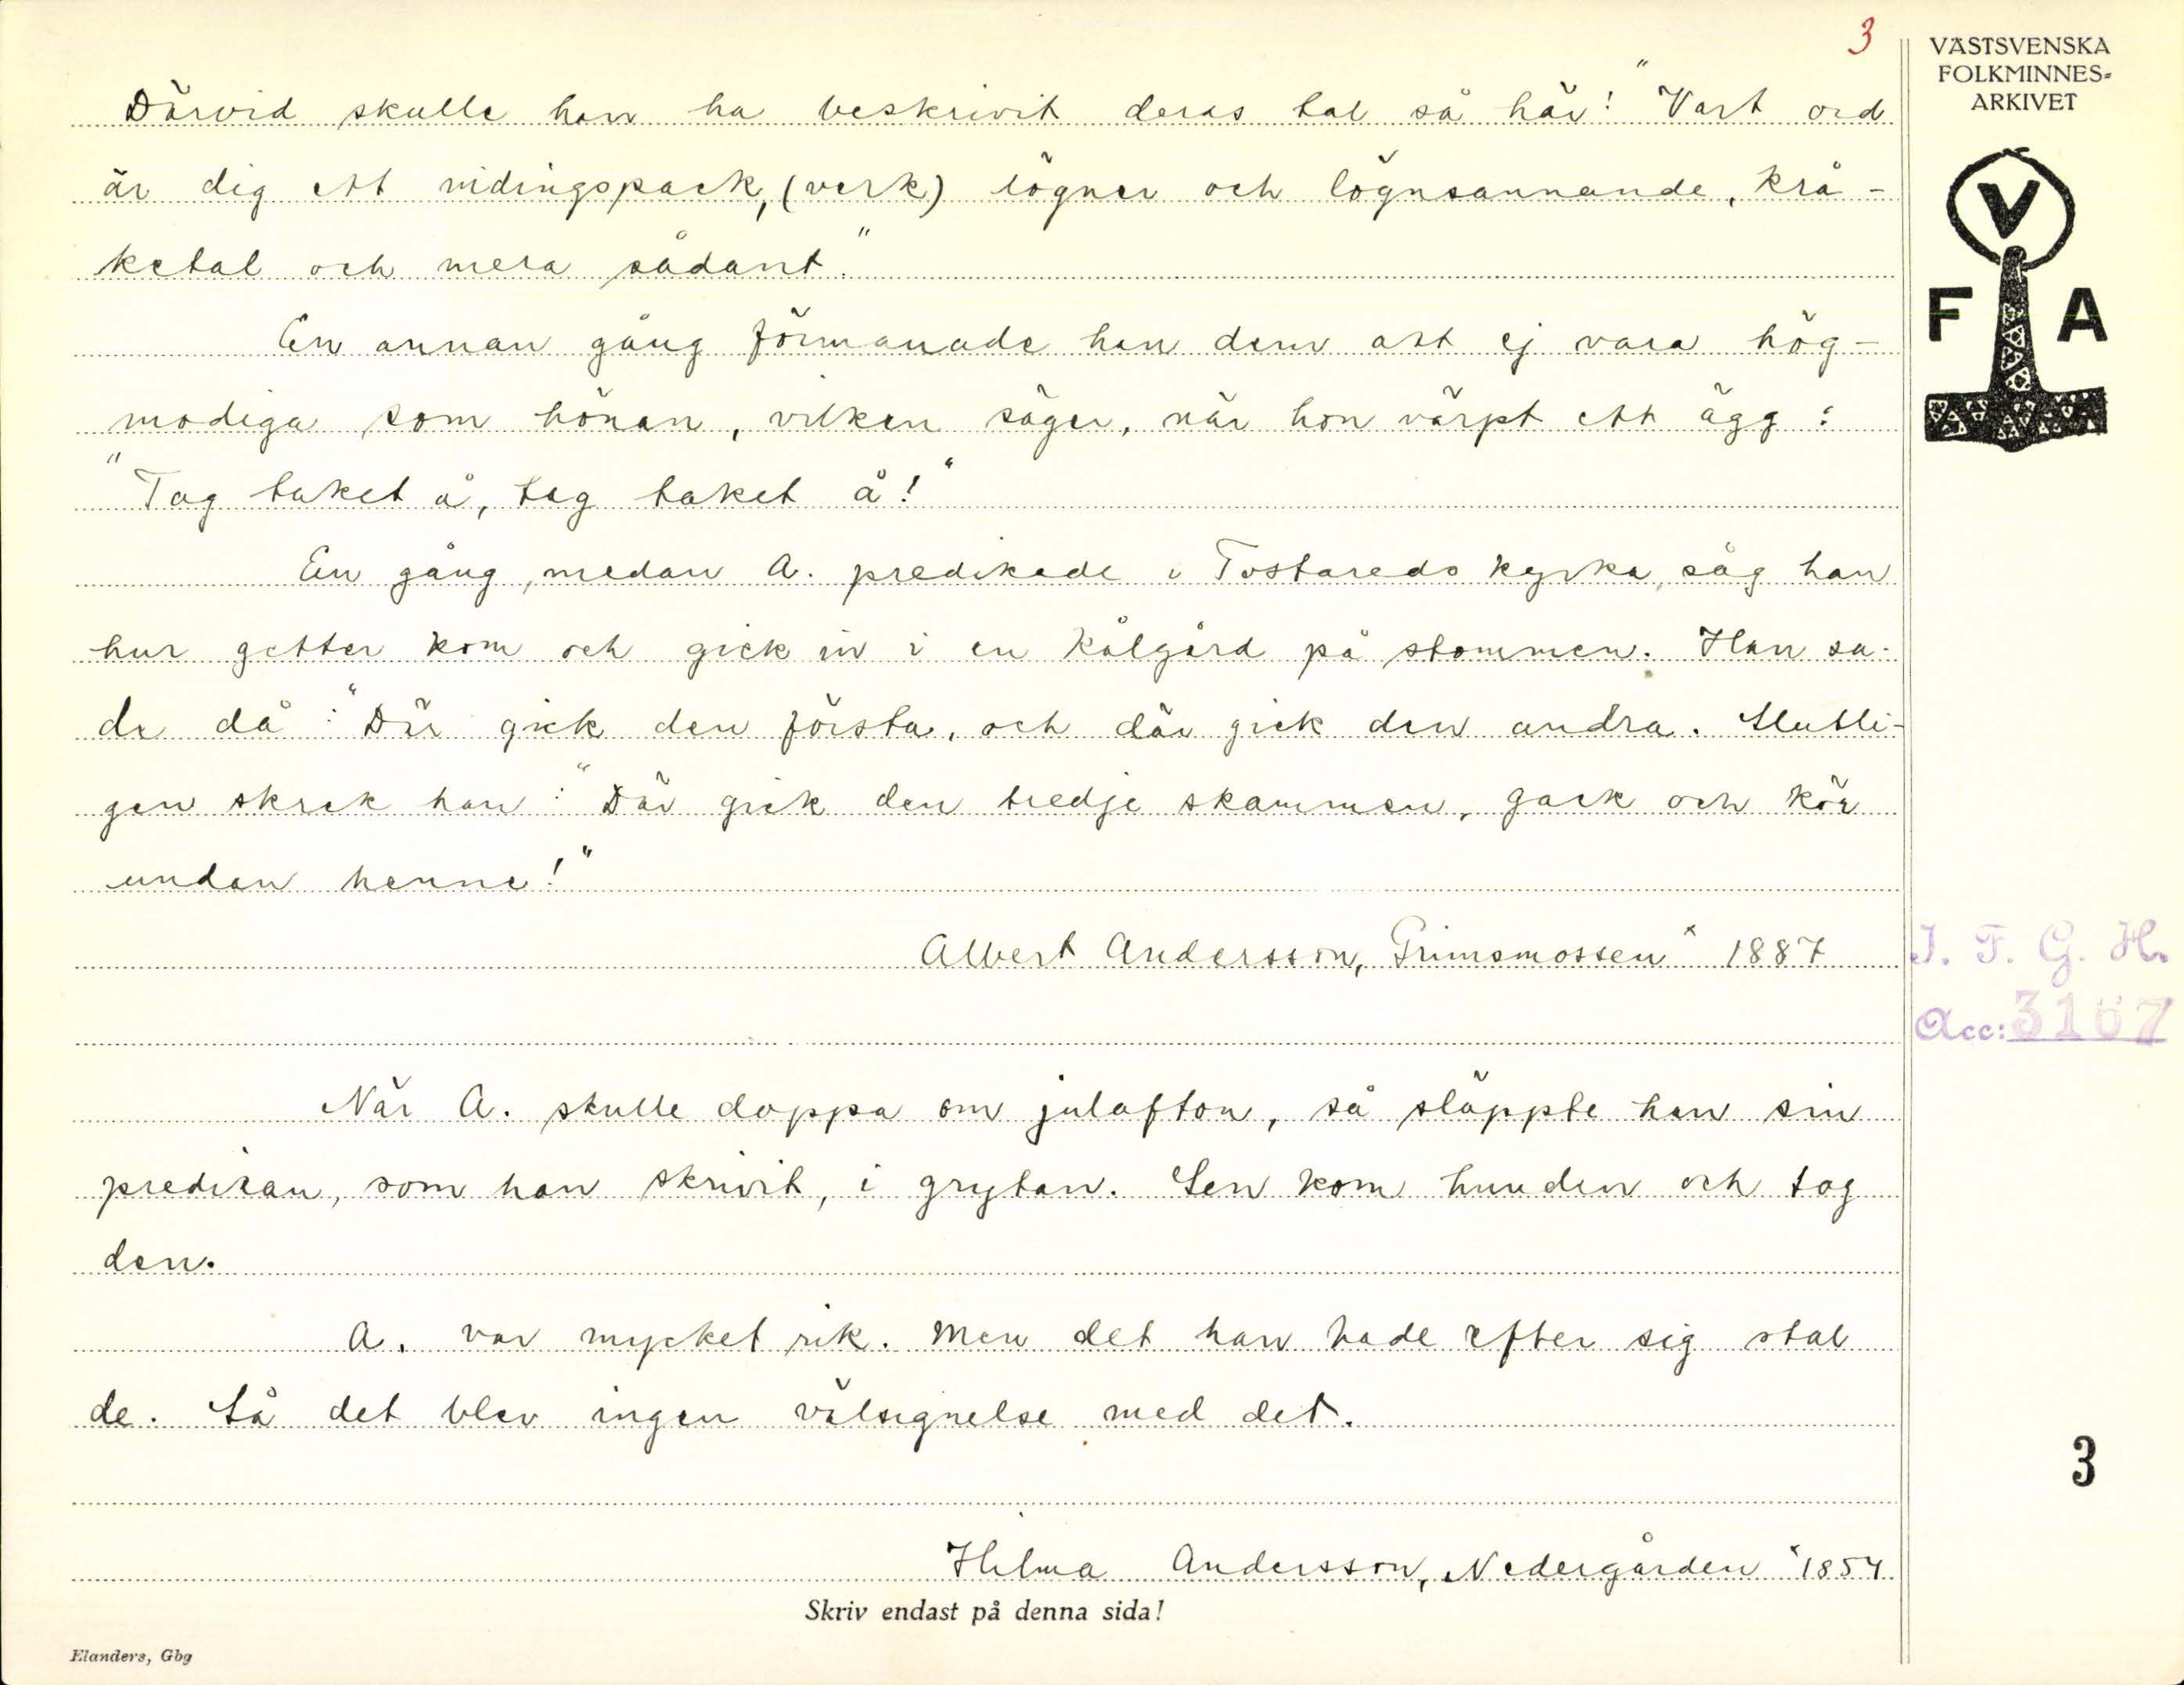 3
VÄSTSVENSKA
FOLKMINNES-
ARKIVET
V
F A
Därvid skulle han ha beskrivit deras tal så här: "Vart ord
är dig ett nidingspack, (verk) lögner och lögnsannande, krå-
ketal och mera sådant."
En annan gång förmanade han dem att ej vara hög-
modiga som hönan, vilken säger, när hon värpt ett ägg:
"Tag taket å, tag taket å!"
En gång, medan A. predikade i Tostareds kyrka, såg han
hur getter kom och gick in i en kålgård på stommen. Han sa-
de då: "Där gick den första, och där gick den andra. Slutli-
gen skrek han: "Där gick den tredje skammen, gack och kör
undan henne!"
Albert Andersson, Grimsmossen * 1887
I. F. G. H.
Acc: 3167
När A. skulle doppa om julafton, så släppte han sin
predikan, som han skrivit, i grytan. Sen kom hunden och tog
den.
A. var mycket rik. Men det han hade efter sig stal
de. Så det blev ingen välsignelse med det.
3
Hilma Andersson, Nedergården * 1854
Skriv endast på denna sida!
Elanders, Gbg